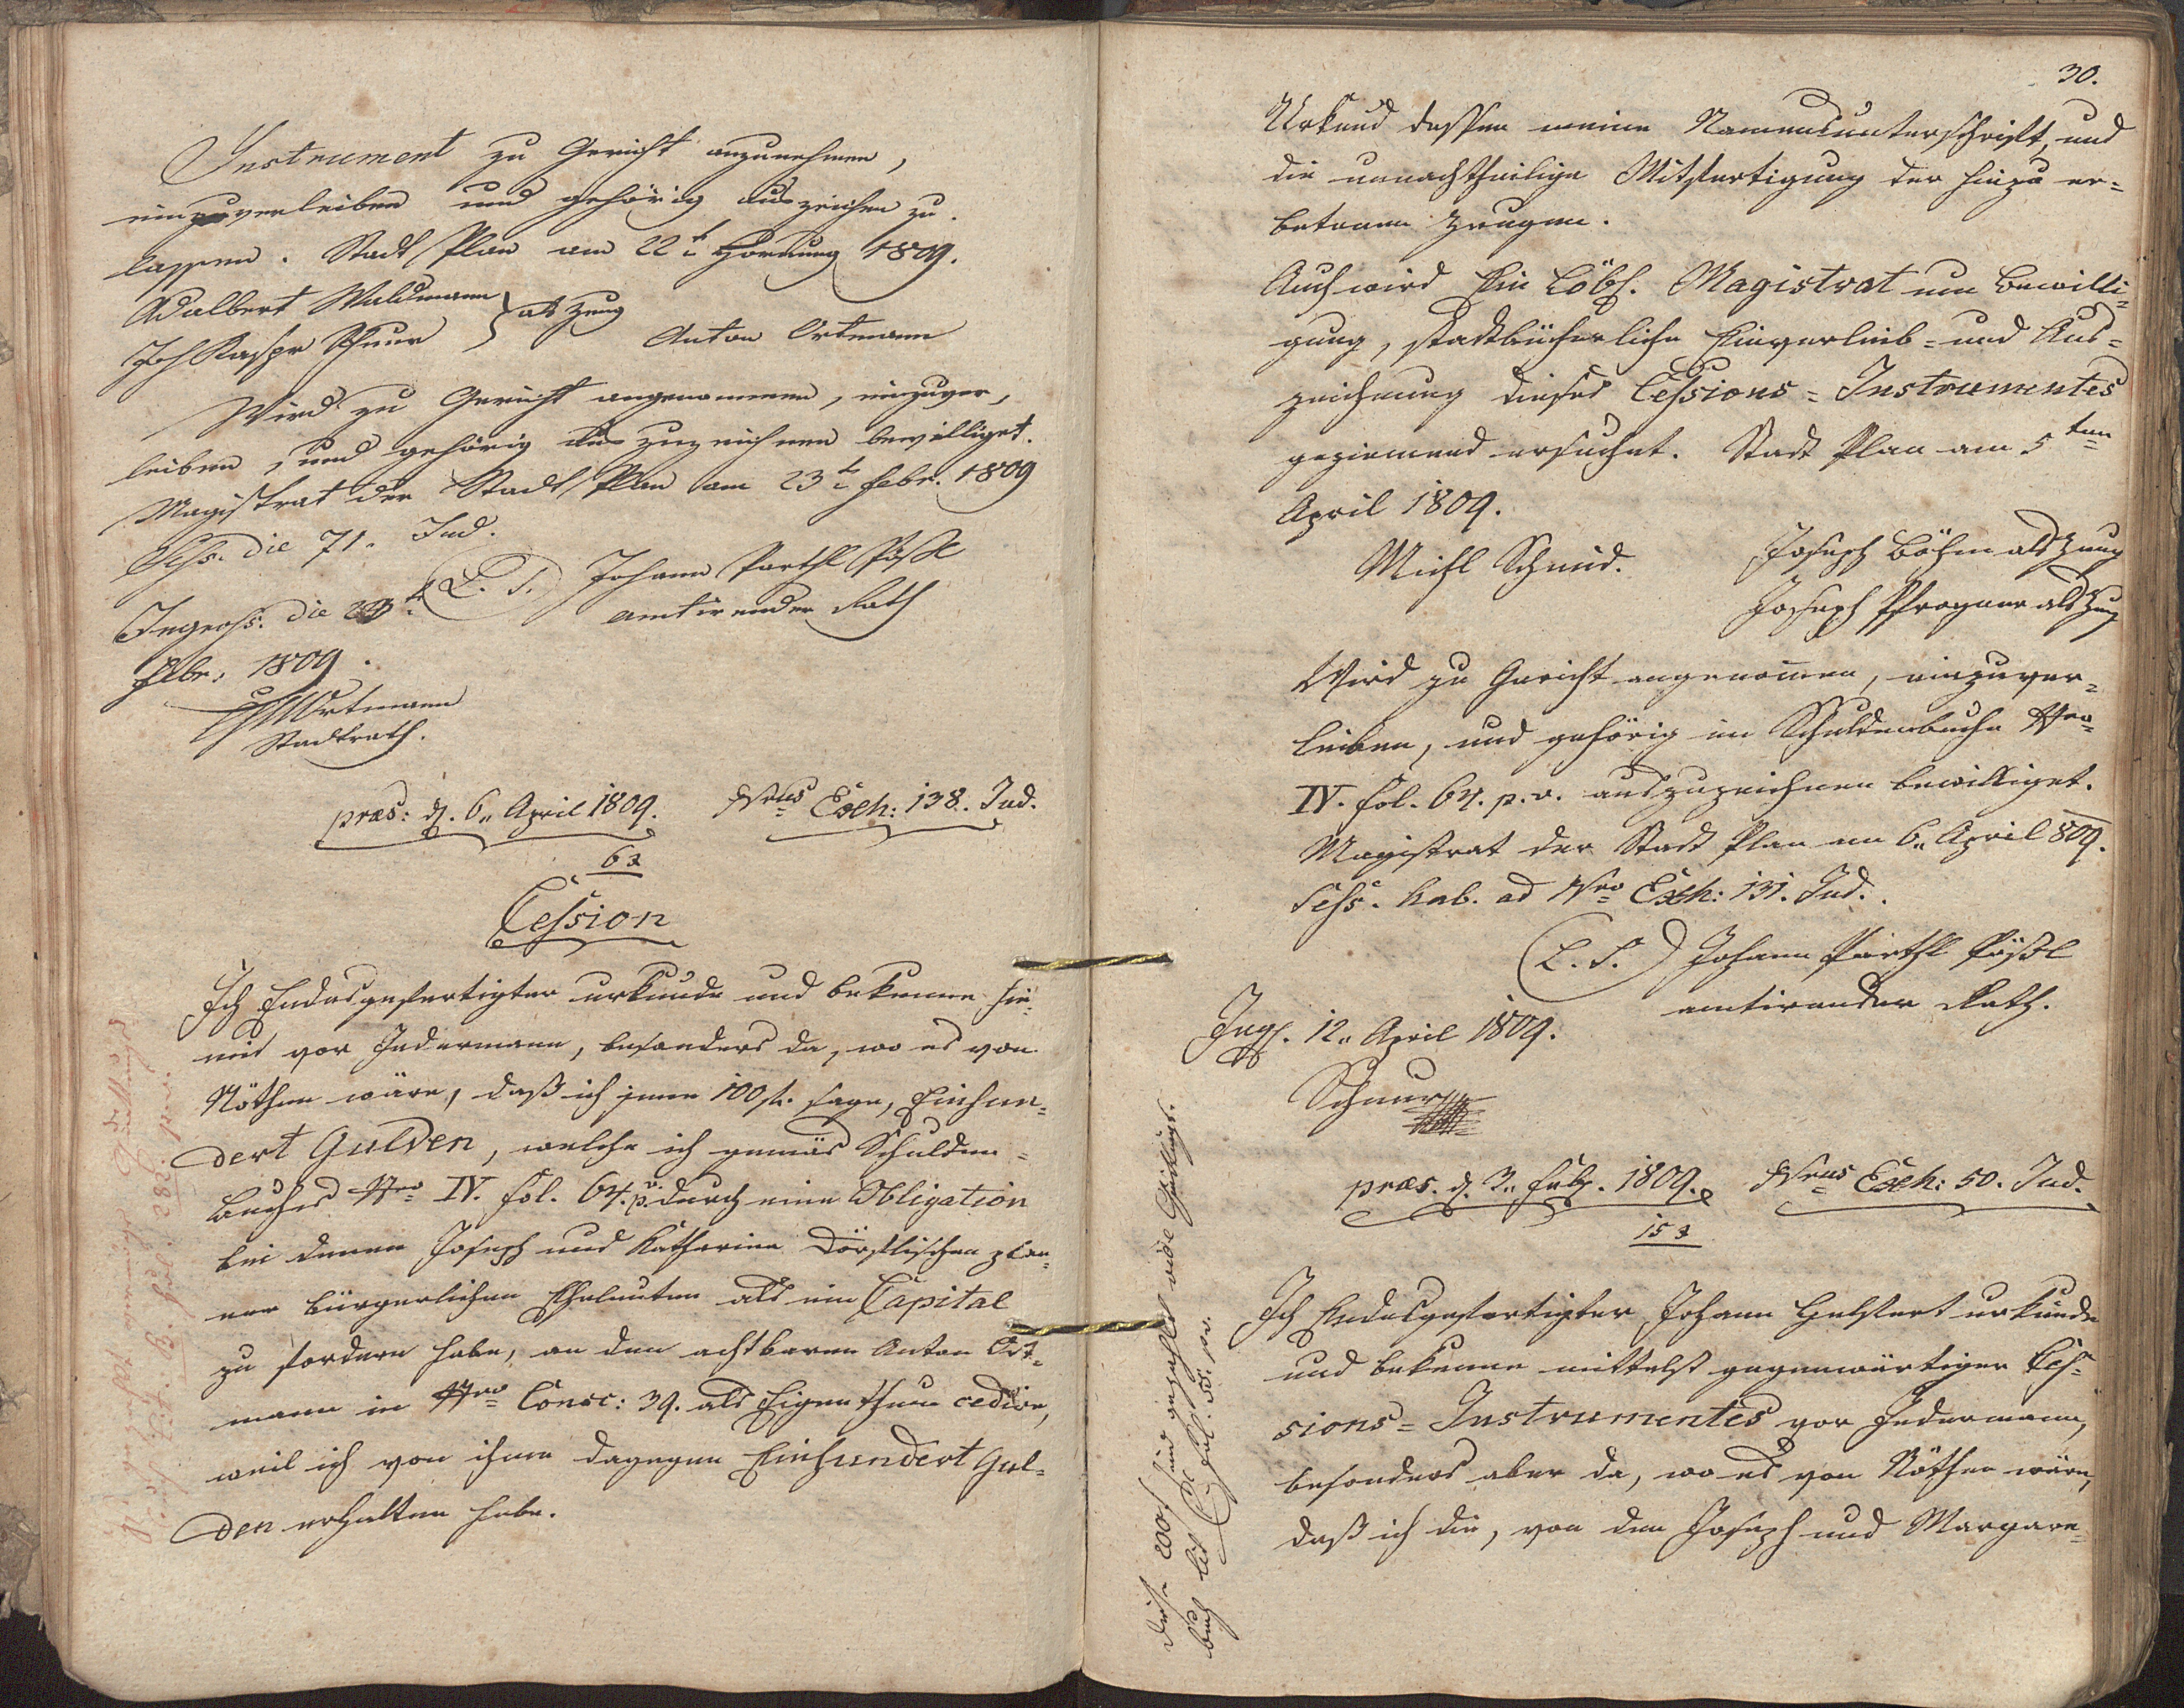 Instrument zu Gericht anzunehmen,
einzuverleiben und gehörig auszeichen zu
lassen. Stadt Plan am 22t Hornung 1809.
Adalbert Waldmann
Joh Kaspr Schnur } als Zeug
Anton Ortmann
Wird zu Gericht angenommen, einzuver,
leiben, und gehörig auszuzeichnen bewilliget.
Magistrat der Stadt Plan am 23t Febr. 1809
Sess. die 71. Jud.
(L. S.) Johann Parthl Pößl
amtirender Rath
Ingross. die 23t
Febr. 1809.
Ortmann
Stadtrath.
præs: d. 6.. April 1809. Nrus Exh: 138. Jud.
63
Cession
Ich Endesgefertigter urkunde und bekenne hie-
mit vor Jedermann, besonders da, wo es von
Nöthen wäre, daß ich jene 100 fl. sage, Einhun-
dert Gulden, welche ich gemäs Schulden-
Buches Nro IV. fol. 64. p. v. durch eine Obligation
bei denen Joseph und Katharina Dörflischen plan-
ner bürgerlichen Eheleuten als ein Capital
zu fordern habe, an den achtbaren Anton Ort-
mann in Nro Consc: 39. als Eigenthum cedire,
weil ich von ihme dagegen Einhundert Gul-
den erhalten habe.
30.
Urkund dessen meine Namensunterschrift, und
die unnachtheilige Mitfertigung der hiezu er-
betenen Zeugen.
Auch wird Ein Löbl. Magistrat um Bewilli-
gung, stadtbücherliche Einverleib- und Aus-
zeichnung dieses Cessions-Instrumentes
geziemend ersuchet. Stadt Plan am 5ten
April 1809.
Michl Schmid. Joseph Böhm als Zeug
Joseph Pfrogner als Zeug
Wird zu Gericht angenomen, einzuver-
leiben, und gehörig im Schuldenbuche Nro
IV. fol. 64. p. v. auszuzeichnen bewilliget.
Magistrat der Stadt Plan am 6.. April 809.
Sess. hab. ad Nro Exh: 131. Jud.
(L. S.) Johann Parthl Pößl
amtirender Rath.
Ingr. 12.. April 1809.
Schnur
præs. d. 3.. Febr. 1809. Nrus Exh: 50. Jud.
153
Ich Endesgefertigter Johann Helfert urkunde
und bekenne mittelst gegenwärtigen Ces-
sions-Instrumentes vor Jedermann,
besonders aber da, wo es von Nöthen wäre,
daß ich die, von dem Joseph und Margare-
Diese 200 f sind gezahlt vide Quittungs-
buch